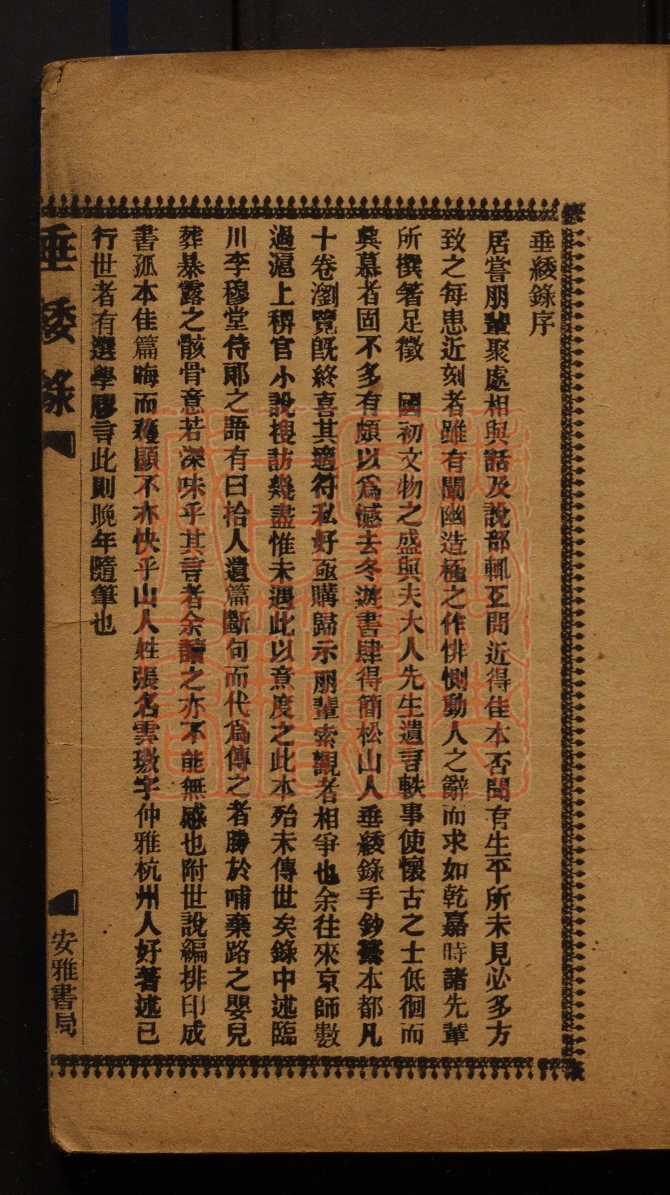 垂緌錄序
居嘗朋輩聚處相與話及說部輒互問近得佳本否聞有生平所未見必多方
致之每患近刻者雖有闡幽造極之作悱惻動人之辭而求如乾嘉時諸先輩
所撰箸足徵　國初文物之盛與夫大人先生遺言軼事使懷古之士低徊而
興慕者固不多有頗以爲憾去冬游書肆得簡松山人垂緌錄手鈔藁本都凡
十卷瀏覽旣終喜其適符私好亟購歸示朋輩索觀者相爭也余往來京師數
過滬上稗官小說搜訪幾盡惟未遇此以意度之此本殆未傳世矣錄中述臨
川李穆堂侍郎之語有曰拾人遺篇斷句而代爲傳之者勝於哺棄路之嬰兒
葬暴露之骸骨意若深味乎其言者余讀之亦不能無感也附世說編排印成
書孤本佳篇晦而獲顯不亦快乎山人姓張名雲璈字仲雅杭州人好著述已
行世者有選學膠言此則晚年隨筆也
垂緌錄
安雅書局